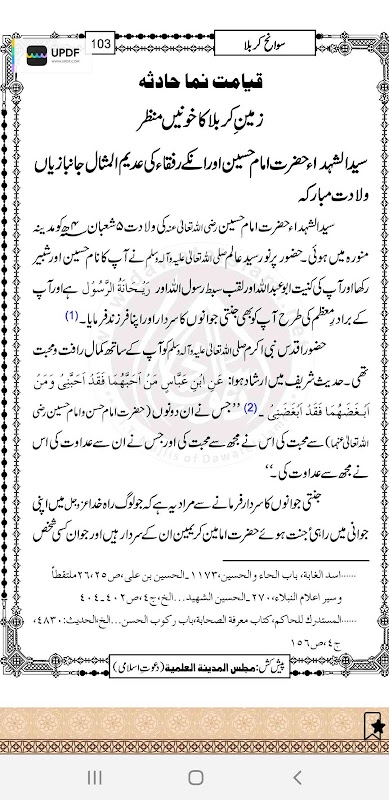 UPDF
WWW.UPDF.COM
103
سوانح کربلا
قیامت نما حادثہ
زمینِ کربلا کا خونیں منظر
سید الشہداء حضرت امام حسین اور انکے رفقاء کی عدیم المثال جانبازیاں
ولادت مبارکہ
سید الشہداء حضرت امام حسین رضی اللہ تعالیٰ عنہ کی ولادت ۵ شعبان ۴ھ کو مدینہ
منورہ میں ہوئی۔ حضور پر نور سید عالم صلی اللہ تعالیٰ علیہ وآلہ وسلم نے آپ کا نام حسین اور شبیر
رکھا اور آپ کی کنیت ابو عبد اللہ اور لقب سبط رسول اللہ اور رَیْحَانَۃُ الرَّسُوْل ہے اور آپ
کے برادرِ معظم کی طرح آپ کو بھی جنتی جوانوں کا سردار اور اپنا فرزند فرمایا۔ (1)
حضور اقدس نبی اکرم صلی اللہ تعالیٰ علیہ وآلہ وسلم کو آپ کے ساتھ کمال رافت و محبت
تھی۔ حدیث شریف میں ارشاد ہوا: عَنِ ابْنِ عَبَّاسٍ مَنْ اَحَبَّهُمَا فَقَدْ اَحَبَّنِیْ وَمَنْ
اَبْغَضَهُمَا فَقَدْ اَبْغَضَنِیْ۔ (2) ’’جس نے ان دونوں (حضرت امام حسن و امام حسین رضی
اللہ تعالیٰ عنہما) سے محبت کی اس نے مجھ سے محبت کی اور جس نے ان سے عداوت کی اس
نے مجھ سے عداوت کی۔‘‘
جنتی جوانوں کا سردار فرمانے سے مراد یہ ہے کہ جو لوگ راہ خدا عزوجل میں اپنی
جوانی میں راہیٔ جنت ہوئے حضرت امامین کریمین ان کے سردار ہیں اور جوان کسی شخص
.....اسد الغابة، باب الحاء والحسین، ۱۱۷۳۔الحسین بن علی، ص۲۵، ۲۶ملتقطاً
وسیر اعلام النبلاء، ۲۷۰۔الحسین الشهید...الخ، ج٤، ص۴۰۲۔۴۰۴
.....المستدرك للحاكم، كتاب معرفة الصحابة، باب ركوب الحسن...الخ، الحدیث: ۴۸۳۰،
ج٤، ص۱۵۶
پیش کش: مجلس المدینة العلمیة (دعوتِ اسلامی)